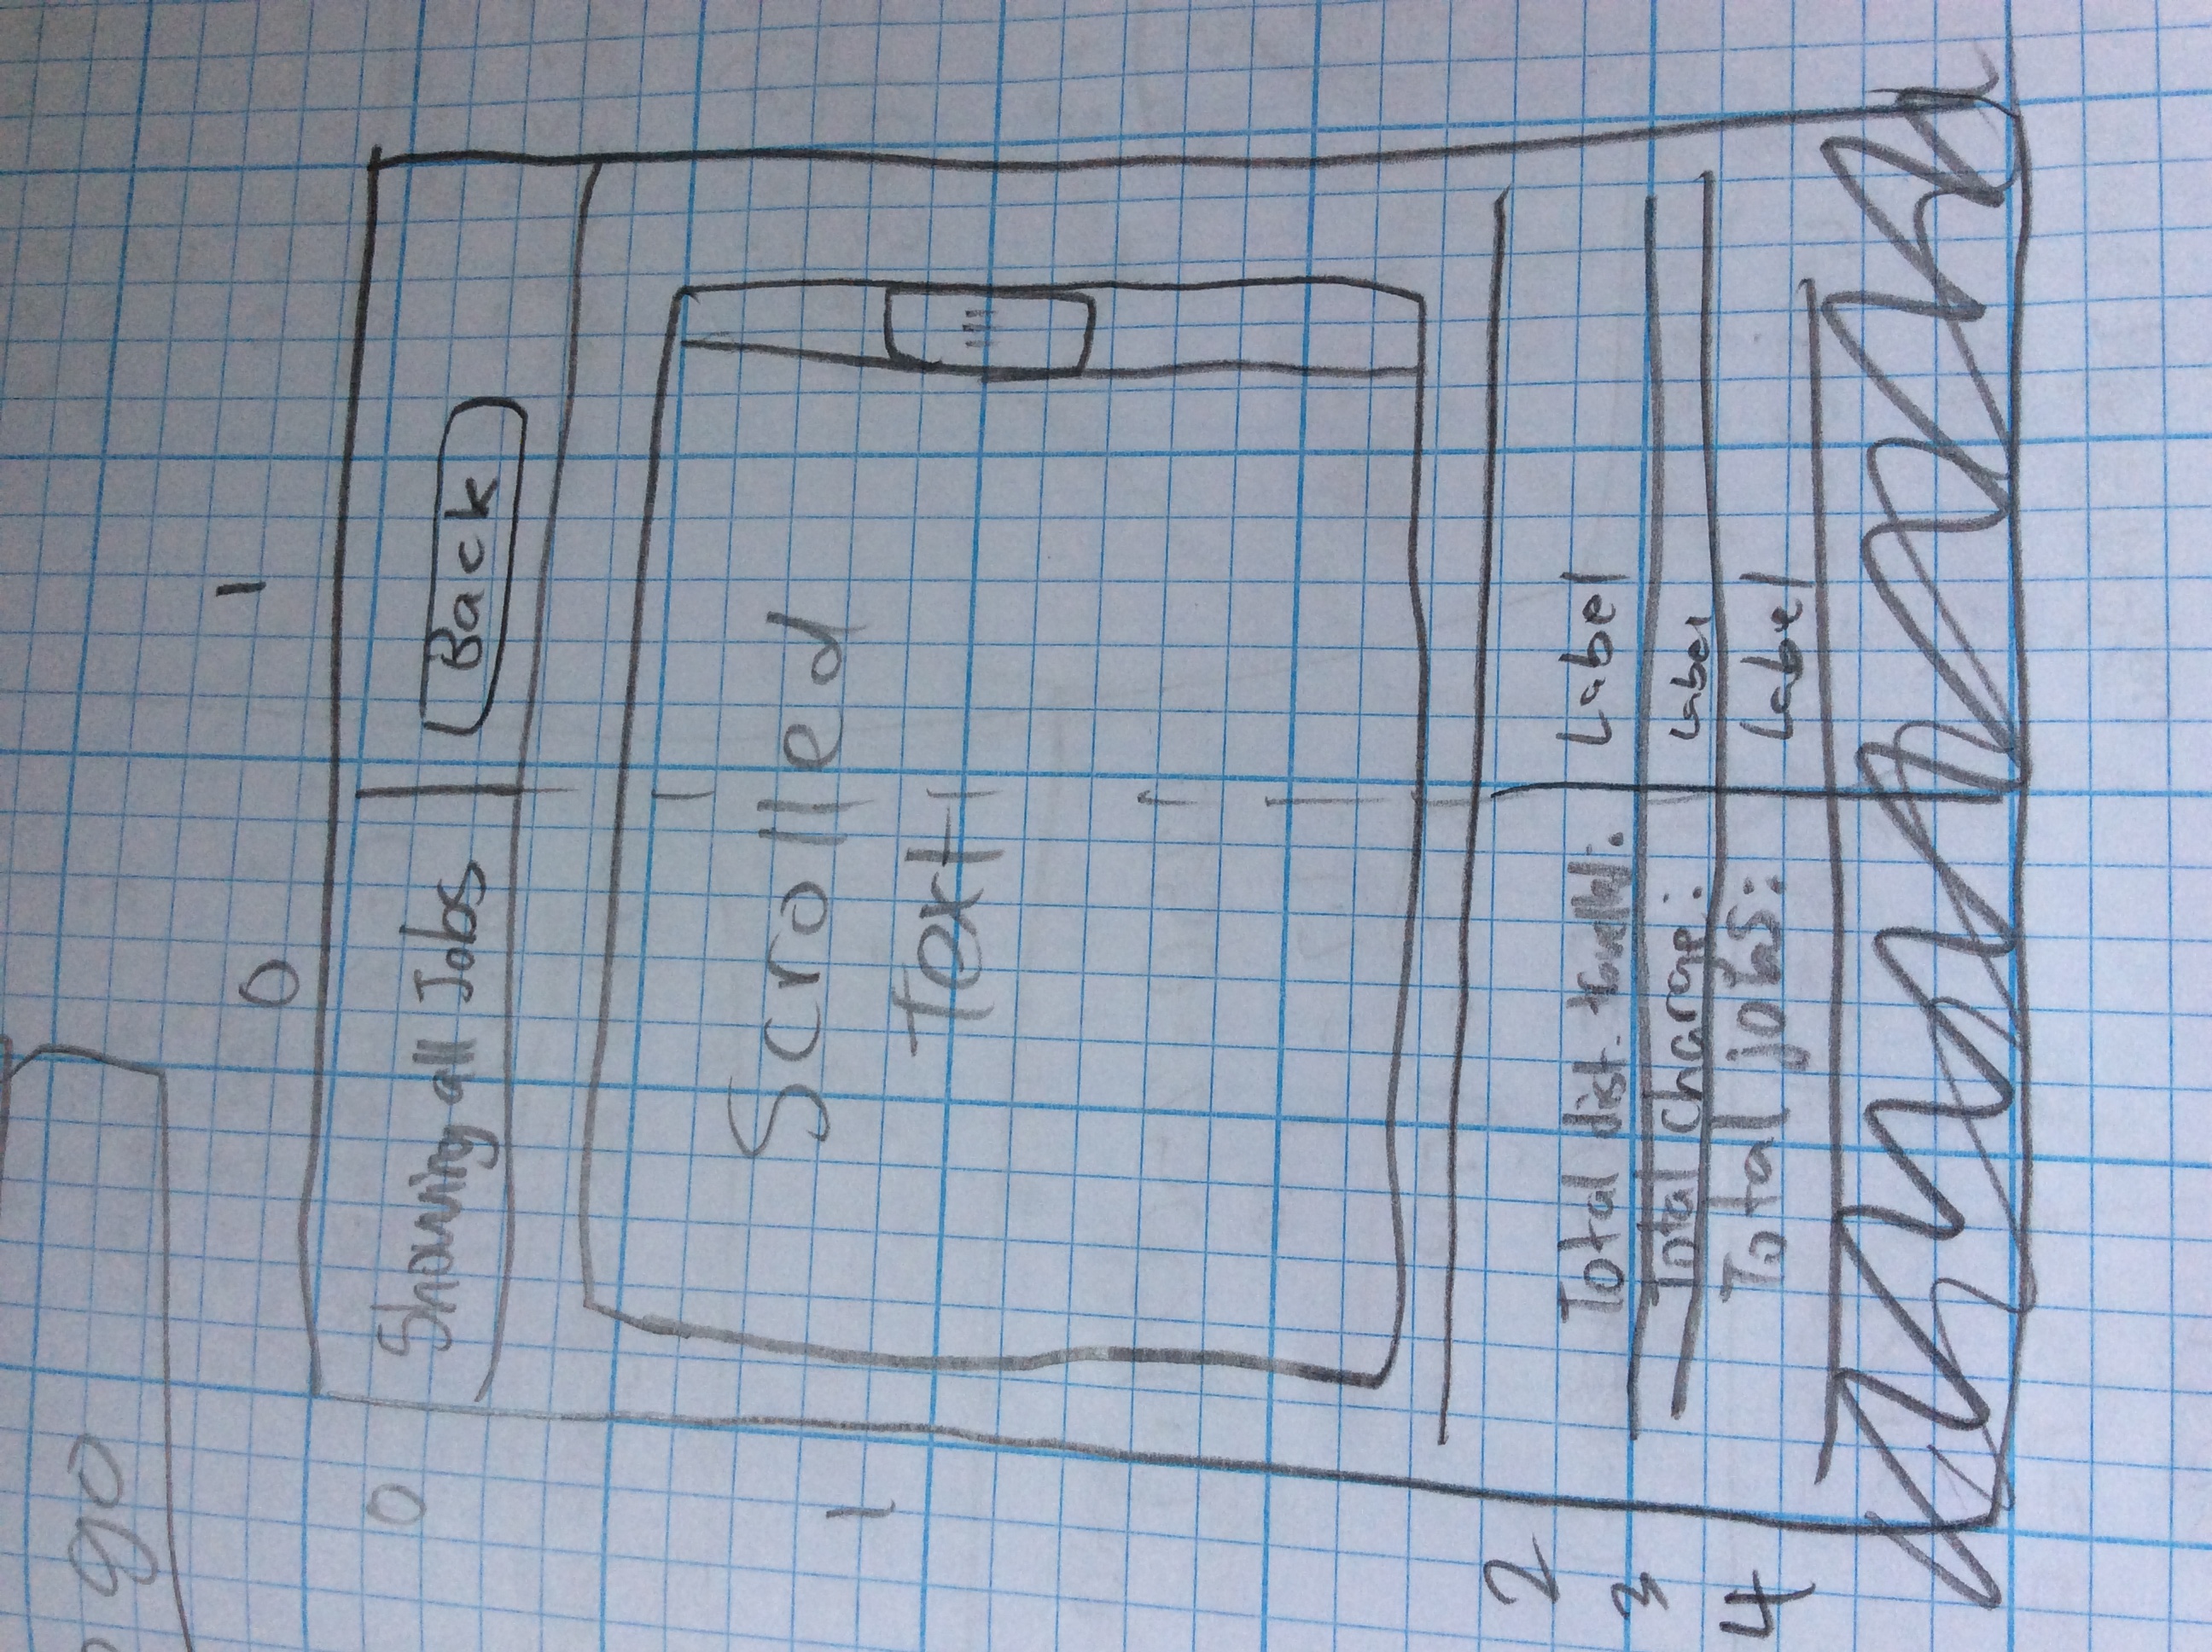 go
0 1
0 Showing all Jobs Back
Scrolled
1
Text
2
Total dist. travelled: Label
3 Total charge: Label
4 Total jobs: Label